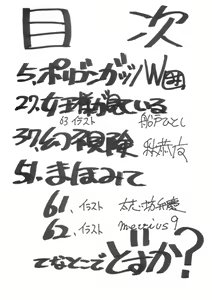 目次
5,ポリゴンガッツW国
27,女王様が見ている
63 イラスト 船戸ひとし
37,幻視険
51,まほみて
61、イラスト
62、イラスト mercius9
てなとこで どすか?